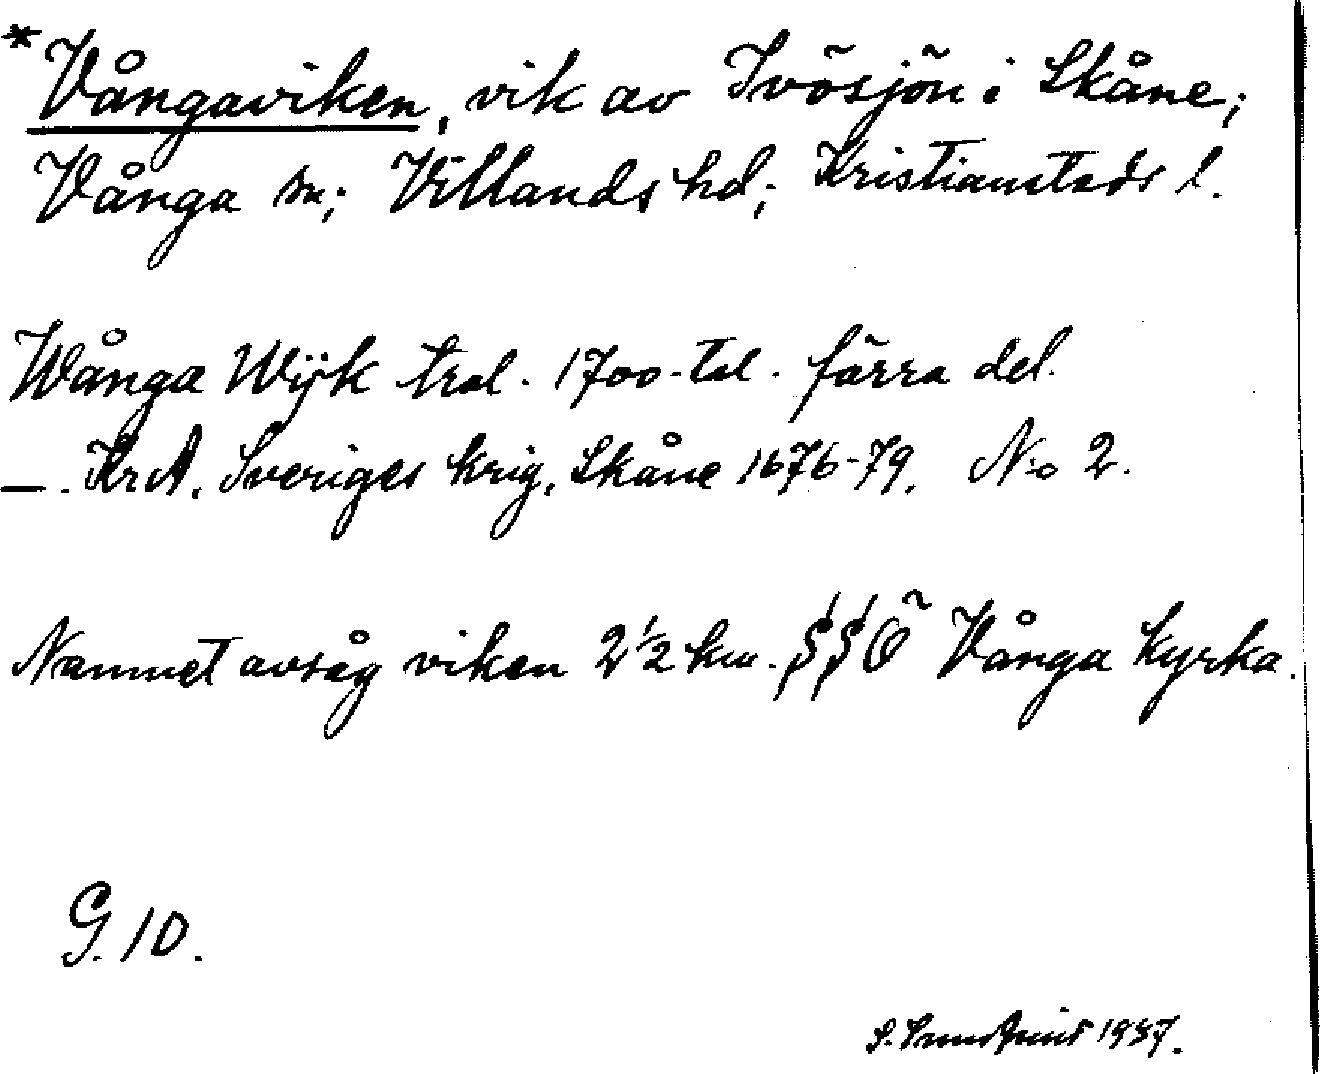 *Vångaviken, vik av Ivösjön i Skåne;
Vånga sn; Villands hd; Kristianstads l.
Wånga Wijk trol. 1700-tal. förra del.
—. KrA. Sveriges krig, Skåne 1676-79. No 2.
Namnet avsåg viken 2½ km. SSÖ Vånga kyrka.
G. 10.
S. 1937.